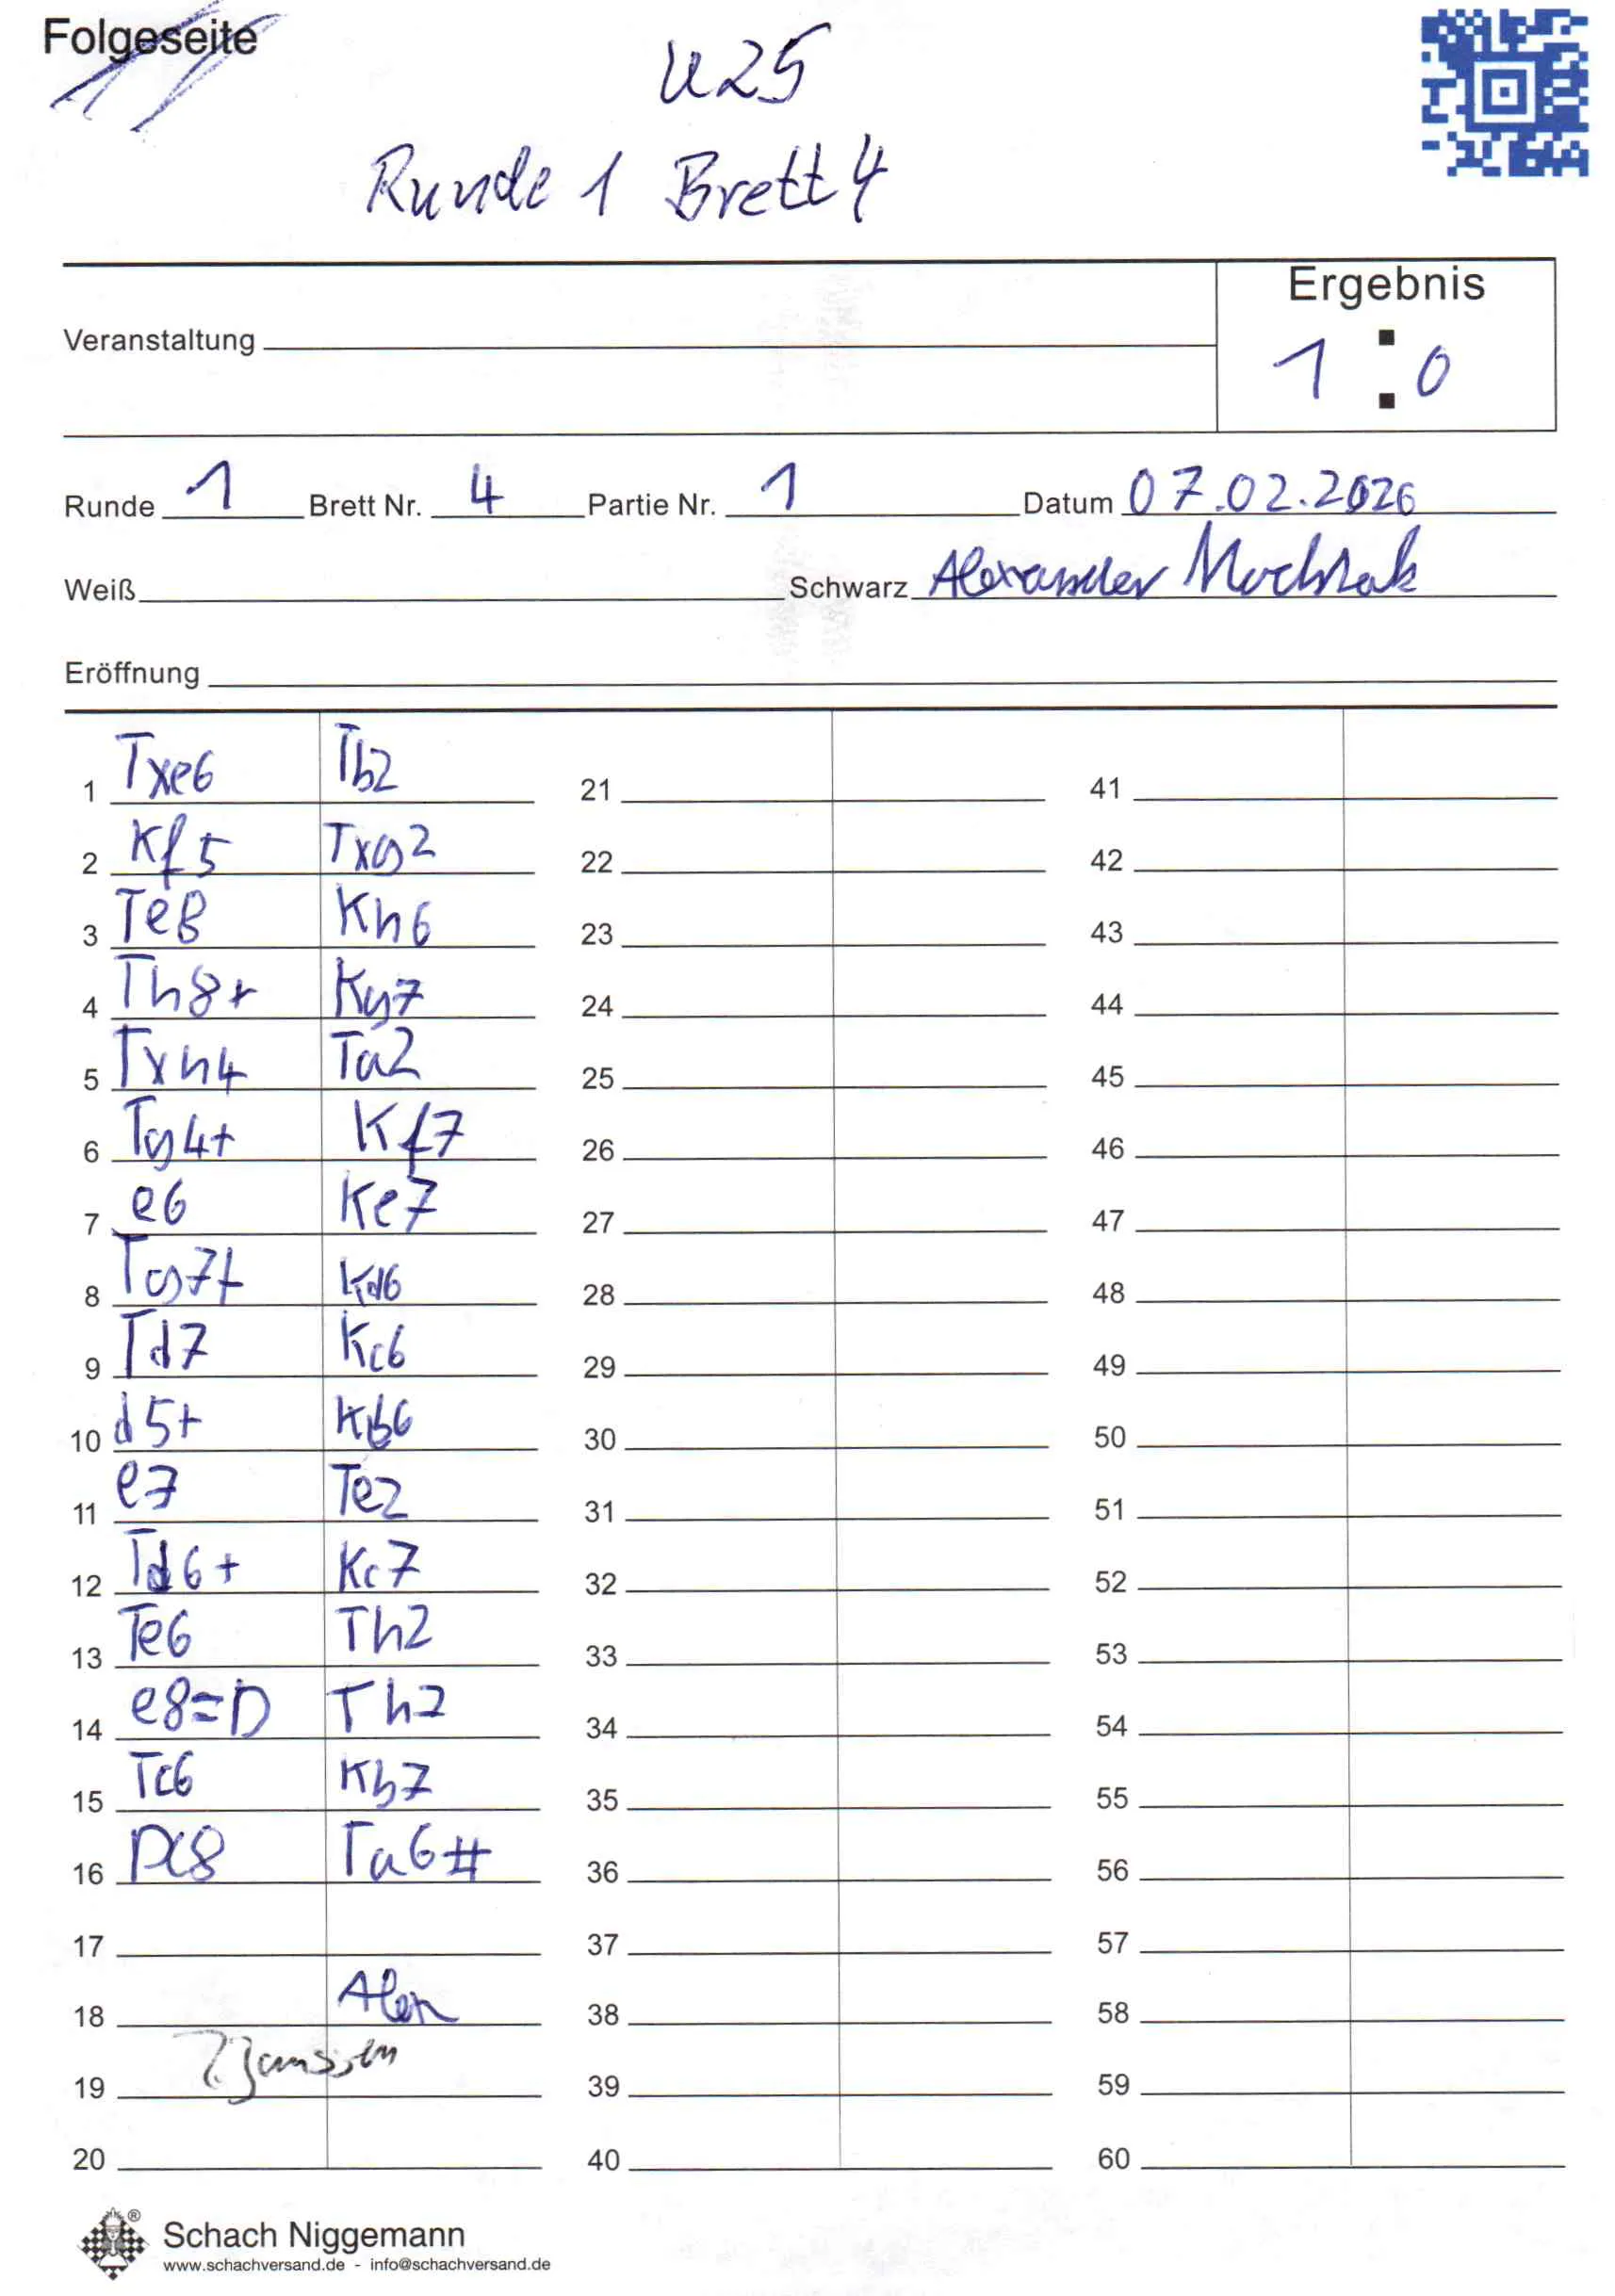 Folgeseite
U25
Runde 1 Brett 4
Ergebnis
Veranstaltung
1 : 0
Runde 1 Brett Nr. 4 Partie Nr. 1 Datum 07.02.2026
Weiß Schwarz Alexander
Eröffnung
1 Txe6 Tb2 21 41
2 Kf5 Txg2 22 42
3 Te8 Kh6 23 43
4 Th8+ Kg7 24 44
5 Txh4 Ta2 25 45
6 Tg4+ Kf7 26 46
7 e6 Ke7 27 47
8 Tg7+ Kd6 28 48
9 Td7 Kc6 29 49
10 d5+ Kb6 30 50
11 e7 Te2 31 51
12 Td6+ Kc7 32 52
13 Te6 Th2 33 53
14 e8=D Th7 34 54
15 Tc6 Kb7 35 55
16 Dc8 Ta6# 36 56
17 37 57
18 Alex 38 58
Janssen
19 39 59
20 40 60
Schach Niggemann
www.schachversand.de - info@schachversand.de